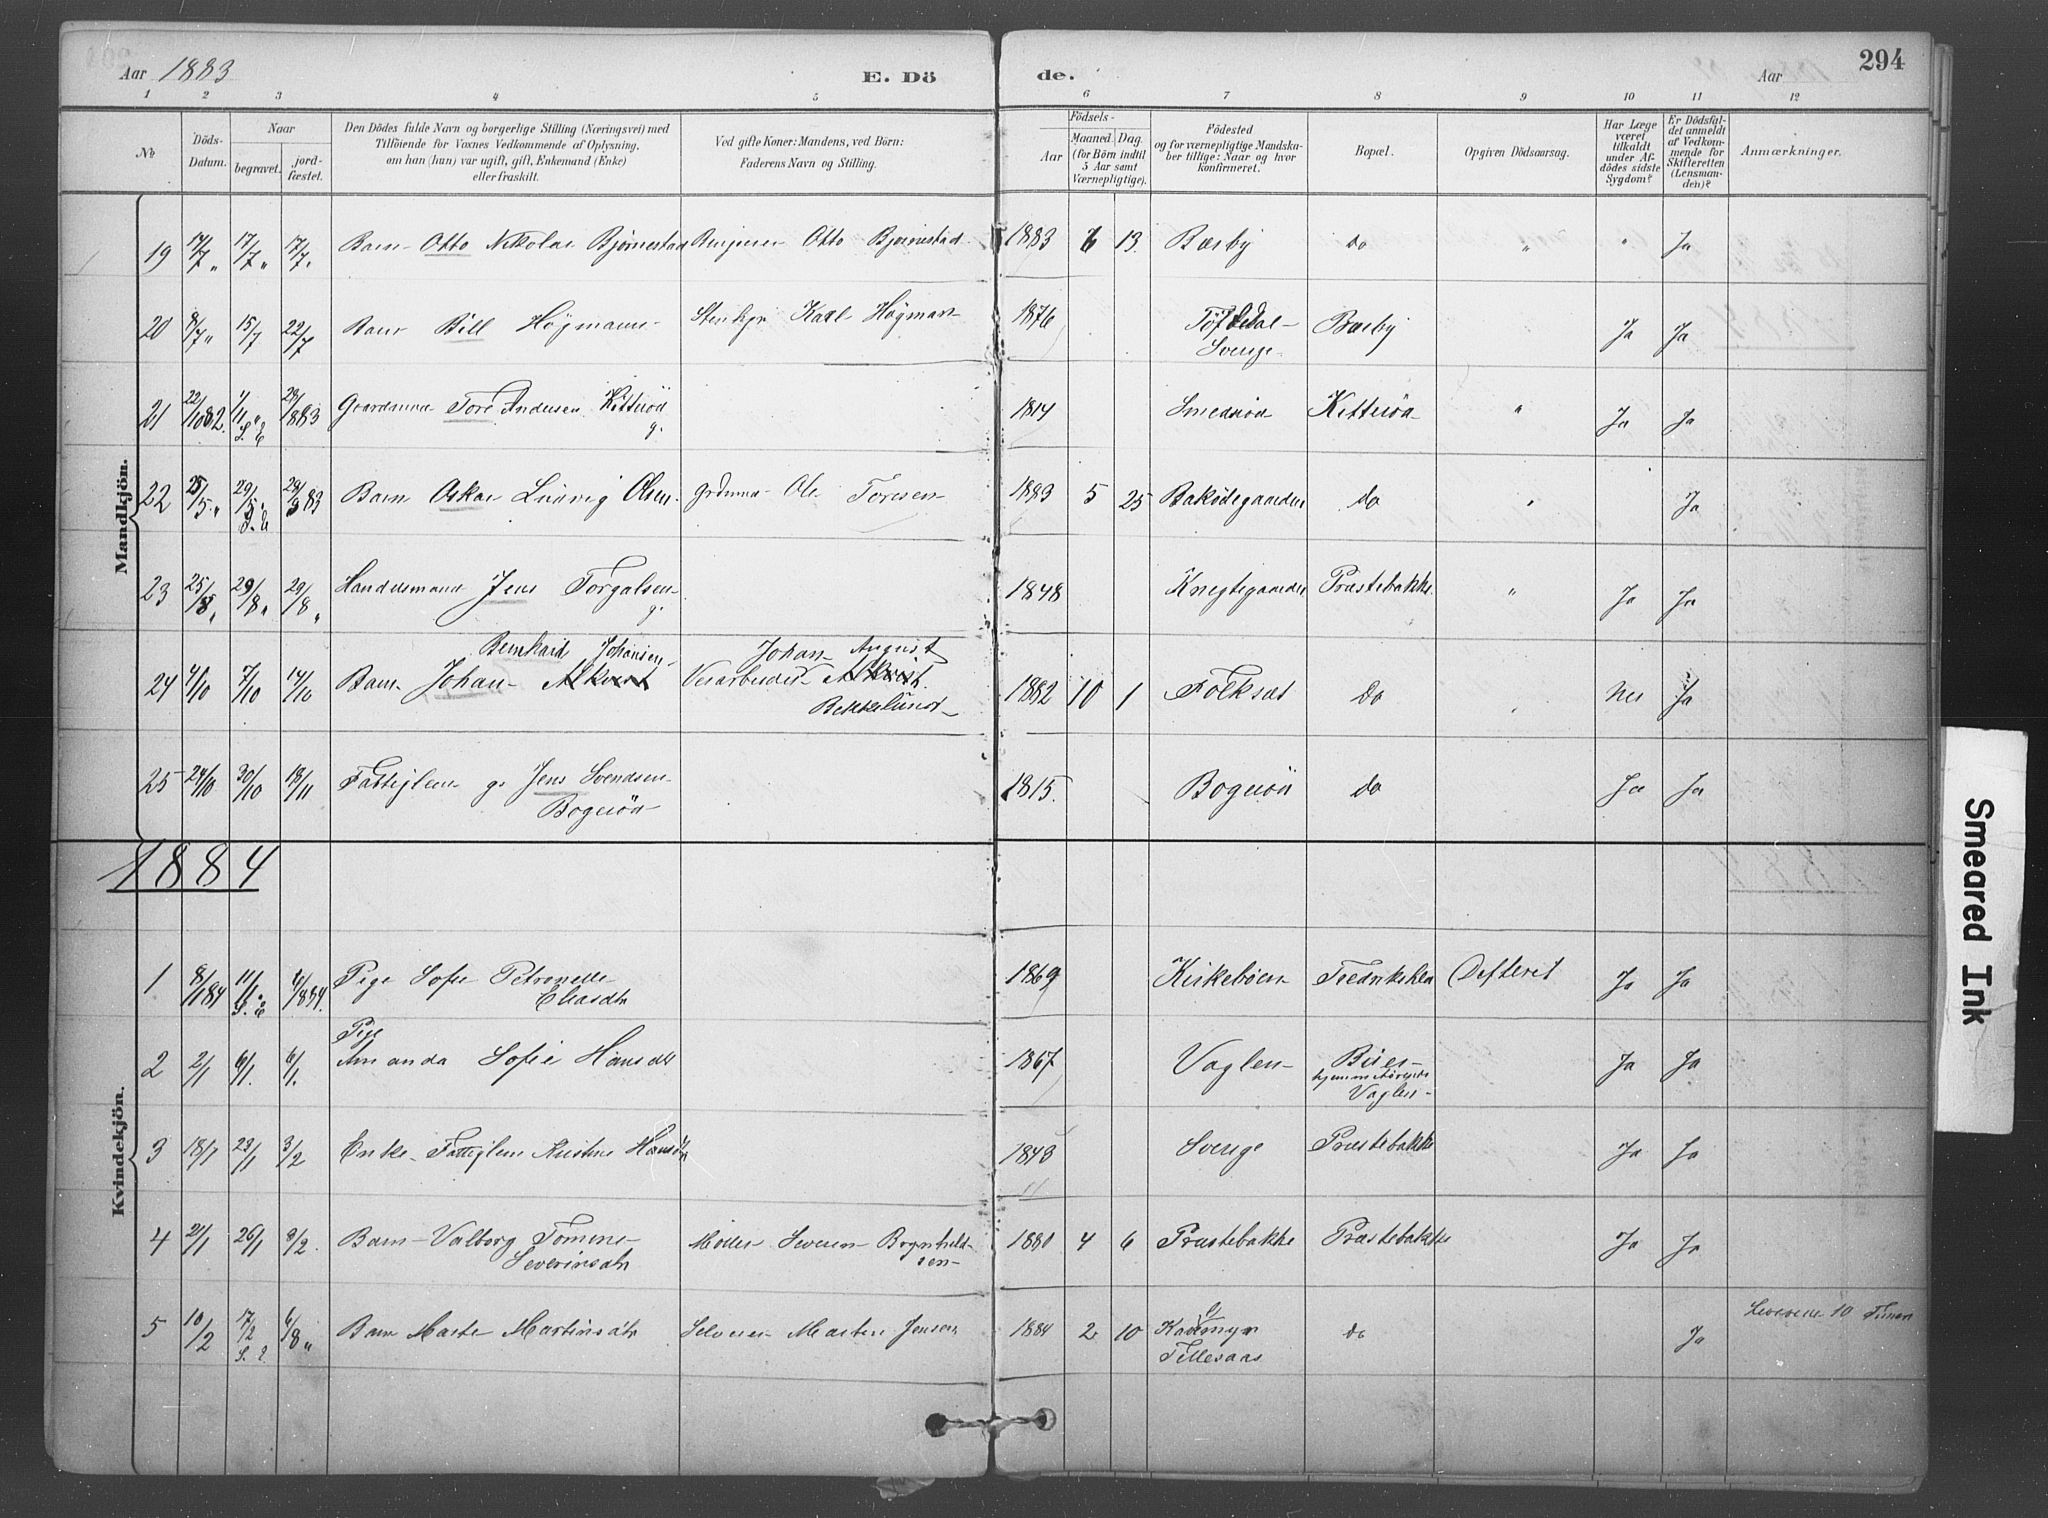 Aar 1883 E. Dö de. Aar 294
1 2 3 4 5 6 7 8 9 10 11 12
No
Döds-Datum.
Naar
begravet.
jordfæstet.
Den Dödes fulde Navn og borgerlige Stilling (Næringsvei) med
Tilföiende for Voxnes Vedkommende af Oplysning,
om han (hun) var ugift, gift, Enkemand (Enke)
eller fraskilt.
Ved gifte Koner: Mandens, ved Börn:
Faderens Navn og Stilling.
Födsels-
Aar
Maaned. Dag.
(for Börn indtil
5 Aar samt
Værnepligtige).
Födested
og for værnepligtige Mandska-
ber tillige: Naar og hvor
konfirmeret.
Bopæl.
Opgiven Dödsaarsag.
Har Læge
været
tilkaldt
under Af-
dödes sidste
Sygdom?
Er Dödsfal-
det anmeldt
af Vedkom-
mende for
Skifteretten
(Lensman-
den)?
Anmærkninger.
Mandkjön.
19 17/7 " 17/7 " 17/7 " Barn Otto Nikolai Björnestad Otto Bjørnestad 1883 6 13 Bærby do " " Ja
20 8/7 " 15/7 22/7 Barn Bill Högmann Karl Högman 1876 Töftedal
Sverige Bærby Ja Ja
21 22/10 82. 1/11 " S.E. 1883 Gaardmand Tore Andersen Kitteröd
g. 1814 Smedröd Kitteröd " Ja Ja
22 25/5 " 29/5 S.E. Barn Oskar Ludvig Olsen Grdmnd Ole Toresen 1883 5 25 Baködegaarden do " Ja
23 25/8 " 29/8 " 29/8 " Handelsmand Jens Torgalsen
g. 1848 Knegtegaarden Præstebakke. " Ja Ja
Bernhard Johansen Johan August
24 4/10 7/10 14/10 Barn Johan Alkvist Alkvist. 1882 10 1 Folksæt do " Nei Ja
Bekkelund
25 24/10 30/10 18/11 Fattiglem g. Jens Svendsen
Bogeröd 1815. Bogeröd do Ja Ja
1884
Kvindekjön.
1 8/1 84 11/1 S.E. Pige Sofie Petronelle
Eliasdtr 1869 Kirkeböen Fredrikshld Defterit Ja Ja
Pige
2 2/1 6/1. 6/1. Amanda Sofie Hansdtr 1867 Vaglen
hjemmehörende
Vaglen Ja Ja
3 18/1 23/1 3/2 Enke Fattiglem Kristine Hansdtr 1843 Sverige Præstebakke Ja Ja
4 21/1 26/1 3/2. Barn Valborg Tomine
Severinsdtr Möller Severin Brynhild-
sen 1880 4 6 Præstebakke Præstebakke Ja Ja
5 10/2 17/2 S.E. 6/8 " Barn Marte Martinsdtr Selveier Martin Jensen 1884 2 10
Tillesaas do Ja Levede 10 Timer
Smeared Ink